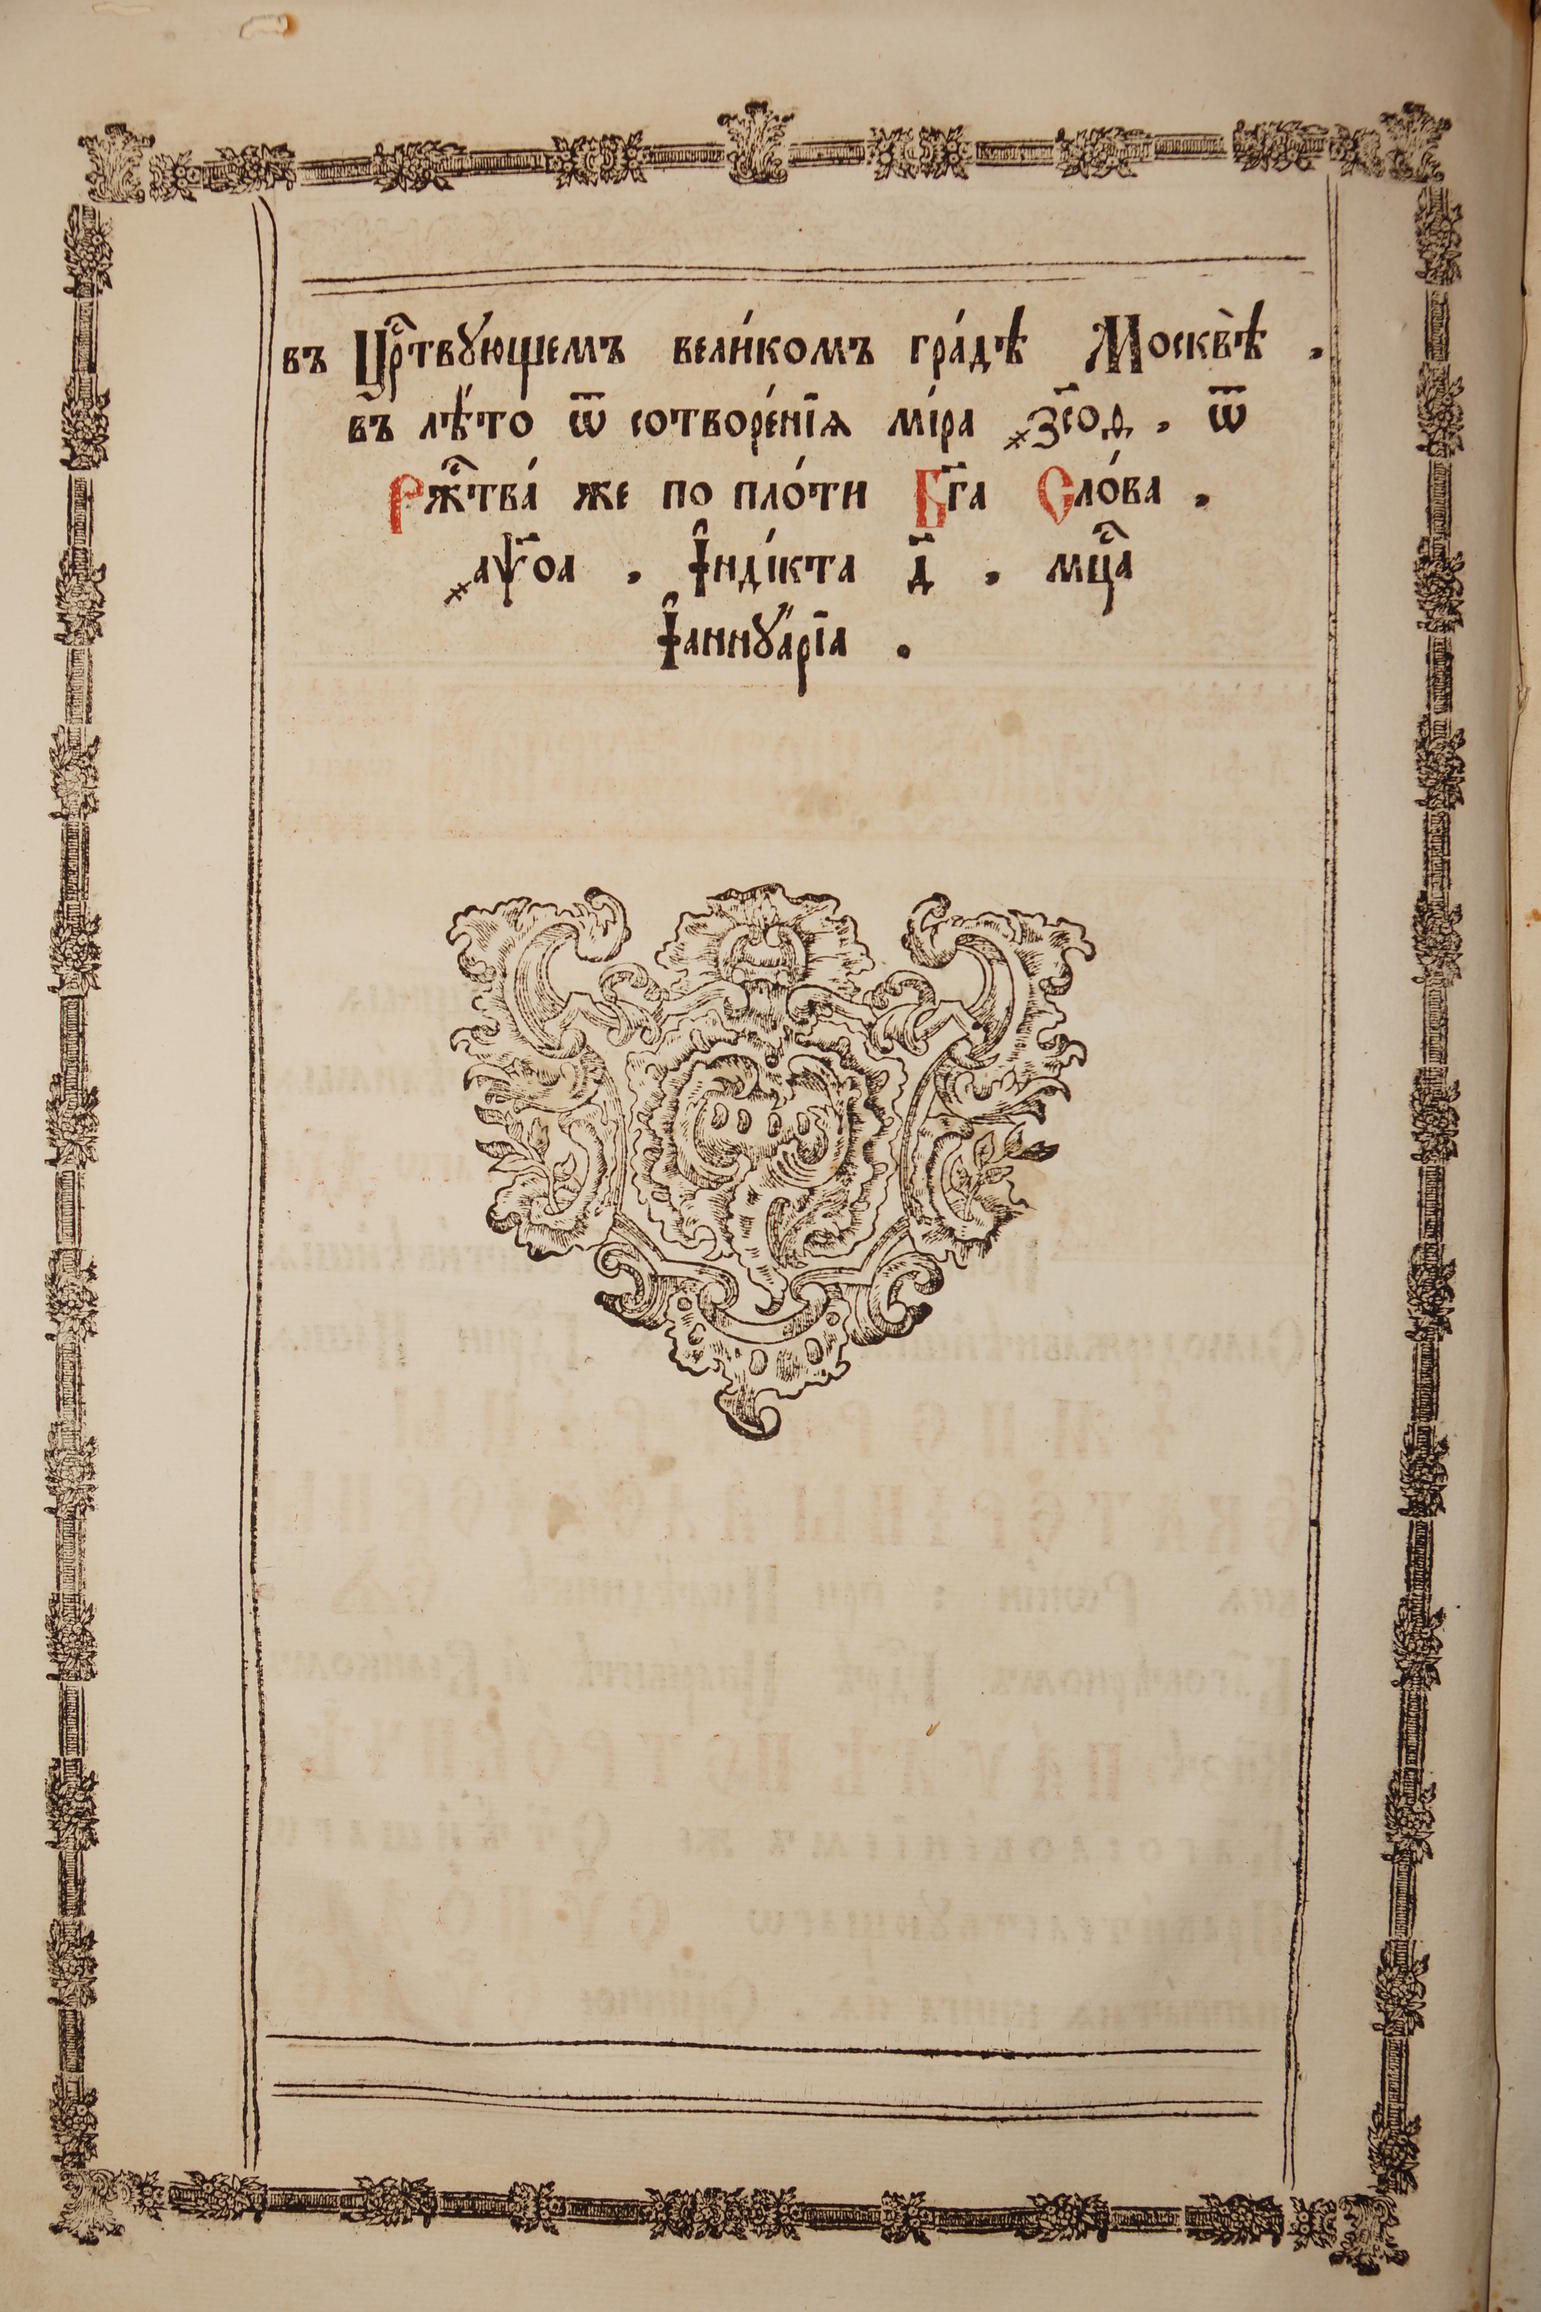 въ Црⷭ҇твꙋ́ющемъ вели́комъ гра́дѣ Москвѣ̀ .
въ лѣ́то ѿ сотворе́нїѧ мі́ра ҂зсо҃д . ѿ
Рж҇ⷭтва́ же по пло́ти Бг҃а Сло́ва .
҂аѱ҃оа . І҆нді́кта д҃ . мцⷭ҇а
І҆аннꙋа́рїа .